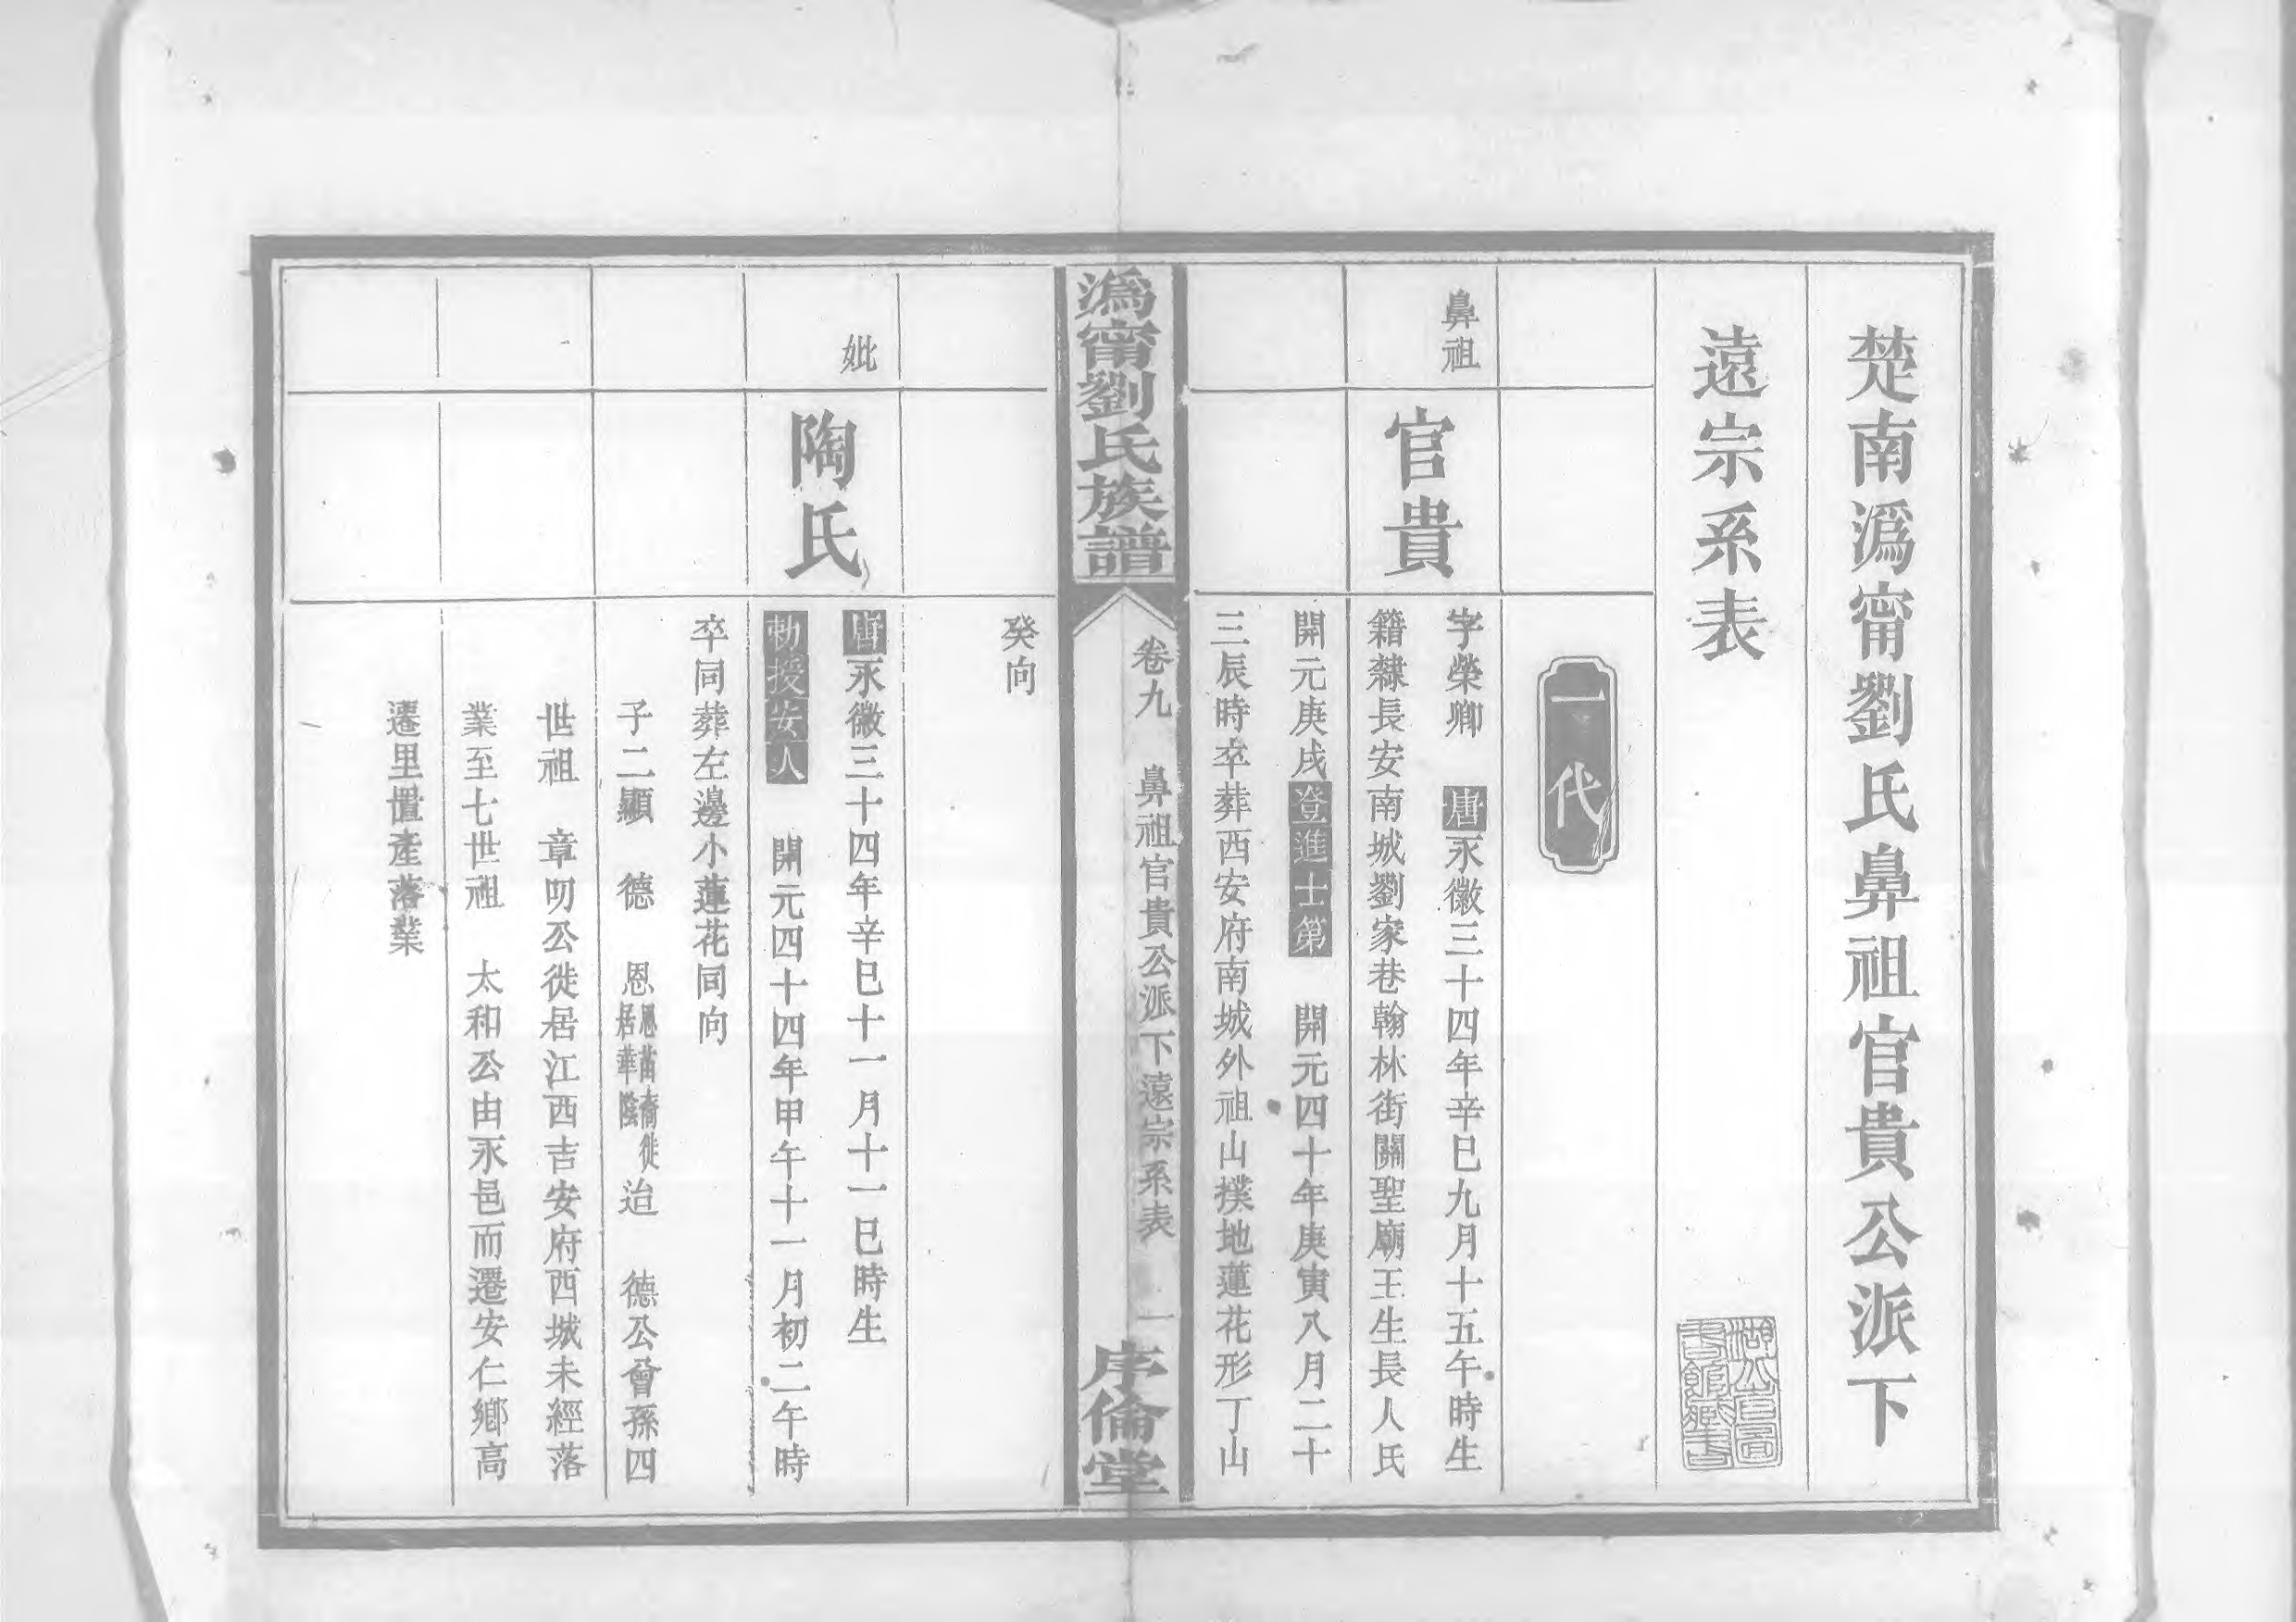 楚南潙甯劉氏鼻祖官貴公派下
遠宗系表
一代
鼻祖
官貴
字榮卿　唐永徽三十四年辛巳九月十五午時生
籍隸長安南城劉家巷翰林街關聖廟王生長人氏
開元庚戌登進士第　開元四十年庚寅八月二十
三辰時卒葬西安府南城外祖山撲地蓮花形丁山
潙甯劉氏族譜
卷九　鼻祖官貴公派下遠宗系表　一
序倫堂
癸向
妣
陶氏
唐永徽三十四年辛巳十一月十一巳時生
勅授安人　開元四十四年甲午十一月初二午時
卒同葬左邊小蓮花同向
子二顯　德　恩恩苗裔徙居華陰迨　德公曾孫四
世祖　章叨公徙居江西吉安府西城未經落
業至七世祖　太和公由永邑而遷安仁鄉高
遷里置產落業